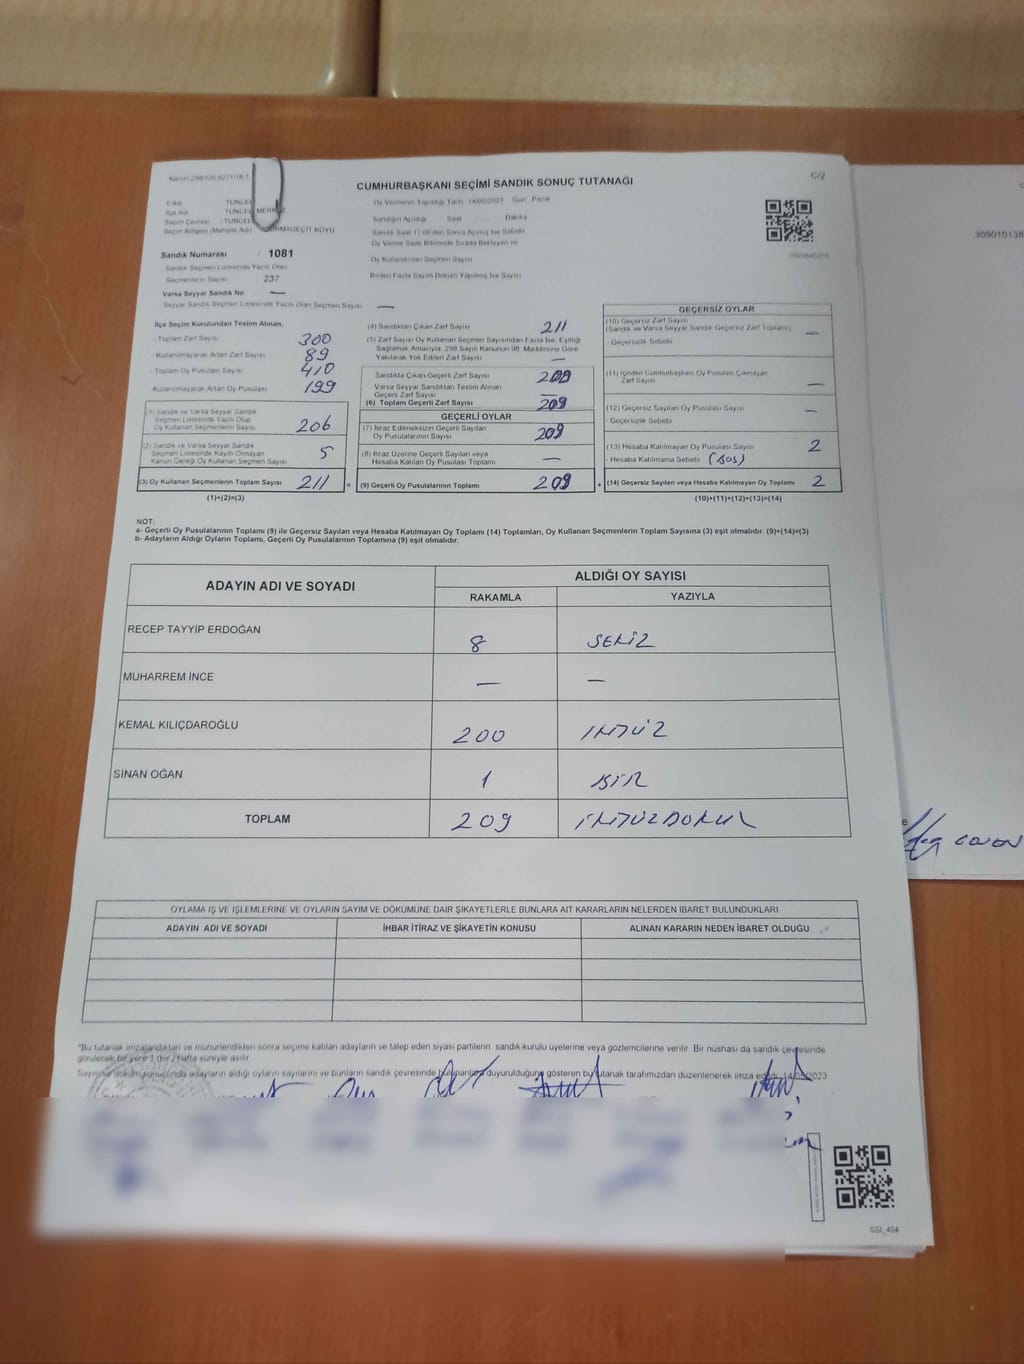 Kanun 298/105,6271/18-1
C/2
CUMHURBAŞKANI SEÇİMİ SANDIK SONUÇ TUTANAĞI
İl Adı: TUNCELİ
İlçe Adı: TUNCELİ MERKEZ
Seçim Çevresi: TUNCELİ
Seçim Bölgesi (Mahalle Adı): KÖYÜ
Oy Vermenin Yapıldığı Tarih 14/05/2023 Gün Pazar
Sandığın Açıldığı Saat Dakika
Sandık Saat 17:00'den Sonra Açılmış İse Sebebi
Oy Verme Saati Bitiminde Sırada Bekleyen ve
Oy Kullandırılan Seçmen Sayısı
Birden Fazla Sayım Döküm Yapılmış İse Sayısı
309010138
Sandık Numarası : 1081
- Sandık Seçmen Listesinde Yazılı Olan
Seçmenlerin Sayısı : 237
Varsa Seyyar Sandık No —
- Seyyar Sandık Seçmen Listesinde Yazılı Olan Seçmen Sayısı —
İlçe Seçim Kurulundan Teslim Alınan;
- Toplam Zarf Sayısı 300
- Kullanılmayarak Artan Zarf Sayısı 89
- Toplam Oy Pusulası Sayısı 410
- Kullanılmayarak Artan Oy Pusulası 199
(1) Sandık ve Varsa Seyyar Sandık
Seçmen Listesinde Yazılı Olup
Oy Kullanan Seçmenlerin Sayısı 206
(2) Sandık ve Varsa Seyyar Sandık
Seçmen Listesinde Kayıtlı Olmayan
Kanun Gereği Oy Kullanan Seçmen Sayısı 5
(3) Oy Kullanan Seçmenlerin Toplam Sayısı 211 =
(1)+(2)=(3)
(4) Sandıktan Çıkan Zarf Sayısı 211
(5) Zarf Sayısı Oy Kullanan Seçmen Sayısından Fazla İse, Eşitliği
Sağlamak Amacıyla, 298 Sayılı Kanunun 98. Maddesine Göre
Yakılarak Yok Edilen Zarf Sayısı —
Sandıkta Çıkan Geçerli Zarf Sayısı 209
Varsa Seyyar Sandıktan Teslim Alınan
Geçerli Zarf Sayısı —
(6) Toplam Geçerli Zarf Sayısı 209
GEÇERLİ OYLAR
(7) İtiraz Edilmeksizin Geçerli Sayılan
Oy Pusulalarının Sayısı 209
(8) İtiraz Üzerine Geçerli Sayılan veya
Hesaba Katılan Oy Pusulası Toplamı —
(9) Geçerli Oy Pusulalarının Toplamı 209 +
GEÇERSİZ OYLAR
(10) Geçersiz Zarf Sayısı
(Sandık ve Varsa Seyyar Sandık Geçersiz Zarf Toplamı) —
Geçersizlik Sebebi:
(11) İçinden Cumhurbaşkanı Oy Pusulası Çıkmayan
Zarf Sayısı —
(12) Geçersiz Sayılan Oy Pusulası Sayısı —
Geçersizlik Sebebi:
(13) Hesaba Katılmayan Oy Pusulası Sayısı 2
- Hesaba Katılmama Sebebi: (BOŞ)
(14) Geçersiz Sayılan veya Hesaba Katılmayan Oy Toplamı 2
(10)+(11)+(12)+(13)=(14)
NOT:
a- Geçerli Oy Pusulalarının Toplamı (9) ile Geçersiz Sayılan veya Hesaba Katılmayan Oy Toplamı (14) Toplamları, Oy Kullanan Seçmenlerin Toplam Sayısına (3) eşit olmalıdır. (9)+(14)=(3)
b- Adayların Aldığı Oyların Toplamı, Geçerli Oy Pusulalarının Toplamına (9) eşit olmalıdır.
ADAYIN ADI VE SOYADI
ALDIĞI OY SAYISI
RAKAMLA YAZIYLA
RECEP TAYYİP ERDOĞAN 8 SEKİZ
MUHARREM İNCE — —
KEMAL KILIÇDAROĞLU 200 İKİYÜZ
SİNAN OĞAN 1 BİR
TOPLAM 209 İKİYÜZDOKUZ
OYLAMA İŞ VE İŞLEMLERİNE VE OYLARIN SAYIM VE DÖKÜMÜNE DAİR ŞİKAYETLERLE BUNLARA AİT KARARLARIN NELERDEN İBARET BULUNDUKLARI
ADAYIN ADI VE SOYADI İHBAR İTİRAZ VE ŞİKAYETİN KONUSU ALINAN KARARIN NEDEN İBARET OLDUĞU
"Bu tutanak imzalandıktan ve mühürlendikten sonra seçime katılan adayların ve talep eden siyasi partilerin sandık kurulu üyelerine veya gözlemcilerine verilir. Bir nüshası da sandık çevresinde
görülecek bir yere 1 (bir) hafta süreyle asılır.
Sayım ve döküm sonucunda adayların aldığı oyların sayılarını ve bunların sandık çevresinde bulunanlara duyurulduğunu gösteren bu tutanak tarafımızdan düzenlenerek imza edildi. 14/05/2023
SSI_404